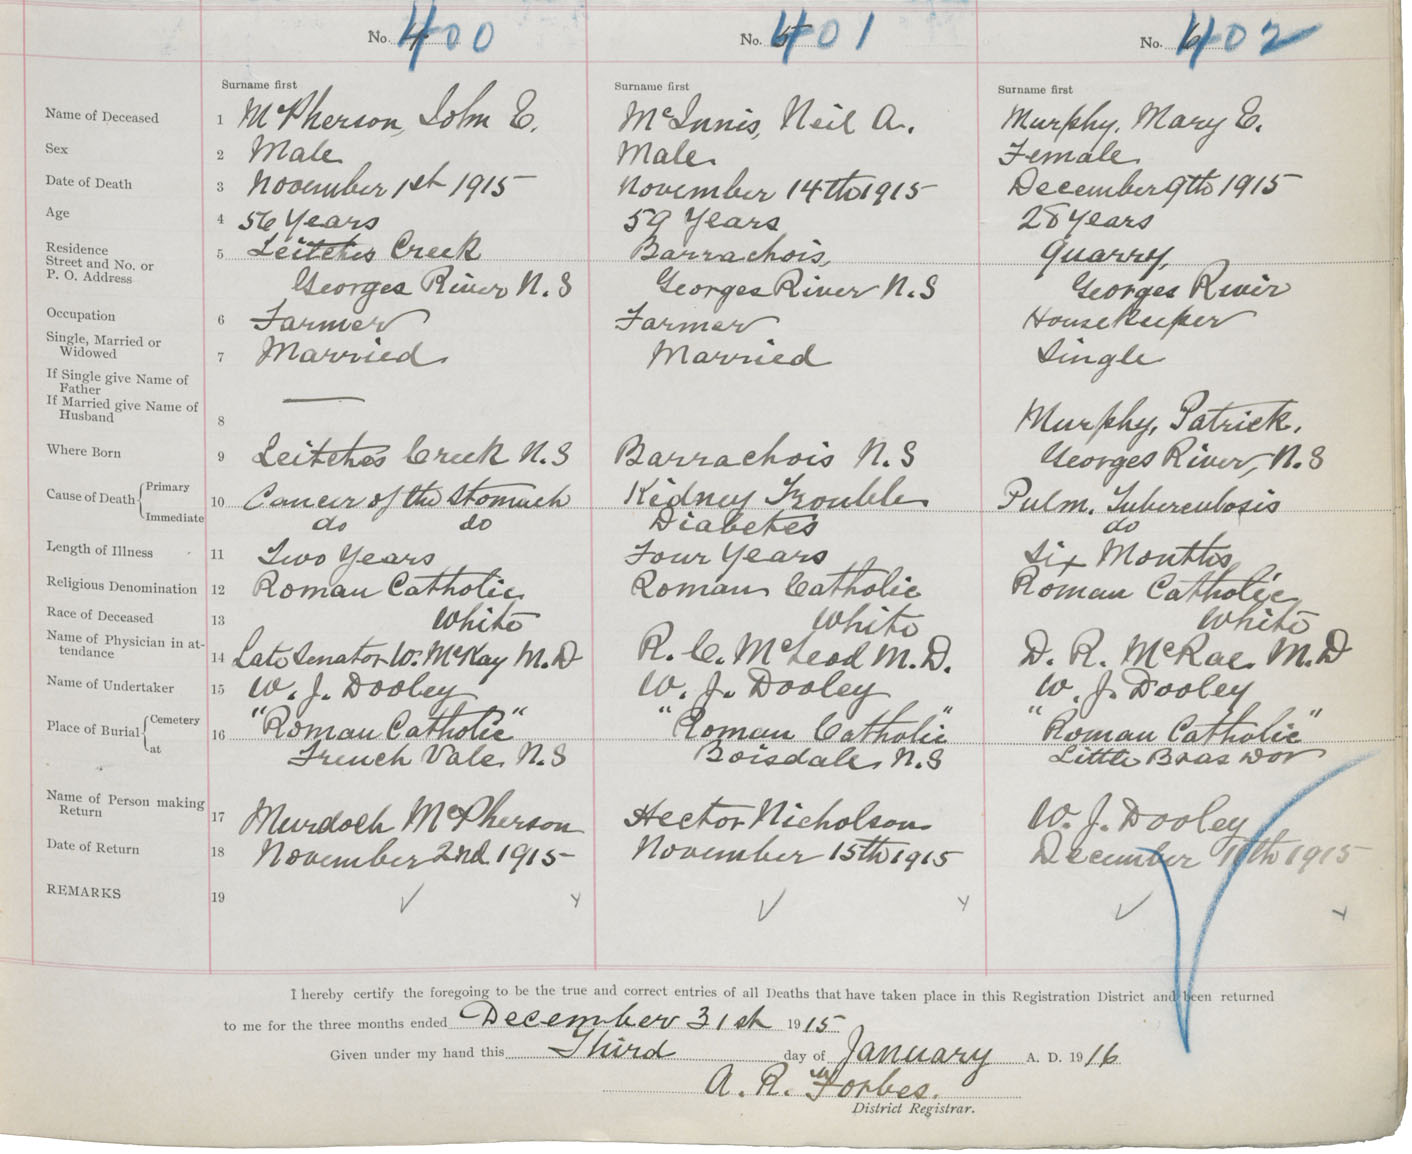 No. 4 400 No. 5 401 No. 6 402
Surname first Surname first Surname first
Name of Deceased 1 McPherson, John E. McInnis, Neil A. Murphy, Mary E.
Sex 2 Male Male. Female
Date of Death 3 November 1st 1915 November 14th 1915 December 9th 1915
Age 4 56 Years 59 Years 28 years
Residence 5 Leitches Creek Barrachois, Quarry,
Street and No. or
P. O. Address Georges River N.S Georges River N.S Georges River
Occupation 6 Farmer Farmer Housekeeper
Single, Married or
Widowed 7 Married. Married Single
If Single give Name of
Father
If Married give Name of
Husband 8 — Murphy, Patrick,
Where Born 9 Leitches Creek N.S Barrachois N.S Georges River, N.S
Cause of Death { Primary 10 Cancer of the Stomach Kidney Trouble Pulm. Tuberculosis
Immediate do do Diabetes do
Length of Illness 11 Two Years Four Years Six Months
Religious Denomination 12 Roman Catholic Roman Catholic Roman Catholic
Race of Deceased 13 White White White
Name of Physician in at-
tendance 14 Late Senator W. McKay M.D R. C. McLeod M.D. D. R. McRae. M.D
Name of Undertaker 15 W. J. Dooley W. J. Dooley W. J. Dooley
Place of Burial { Cemetery 16 "Roman Catholic" "Roman Catholic" "Roman Catholic"
at French Vale, N.S Boisdale, N.S Little Bras Dor
Name of Person making
Return 17 Murdoch McPherson Hector Nicholson W. J. Dooley
Date of Return 18 November 2nd 1915 November 15th 1915 December 11th 1915
REMARKS 19
I hereby certify the foregoing to be the true and correct entries of all Deaths that have taken place in this Registration District and been returned
to me for the three months ended December 31st 1915
Given under my hand this Third day of January A. D. 1916
A. R. Forbes.
District Registrar.